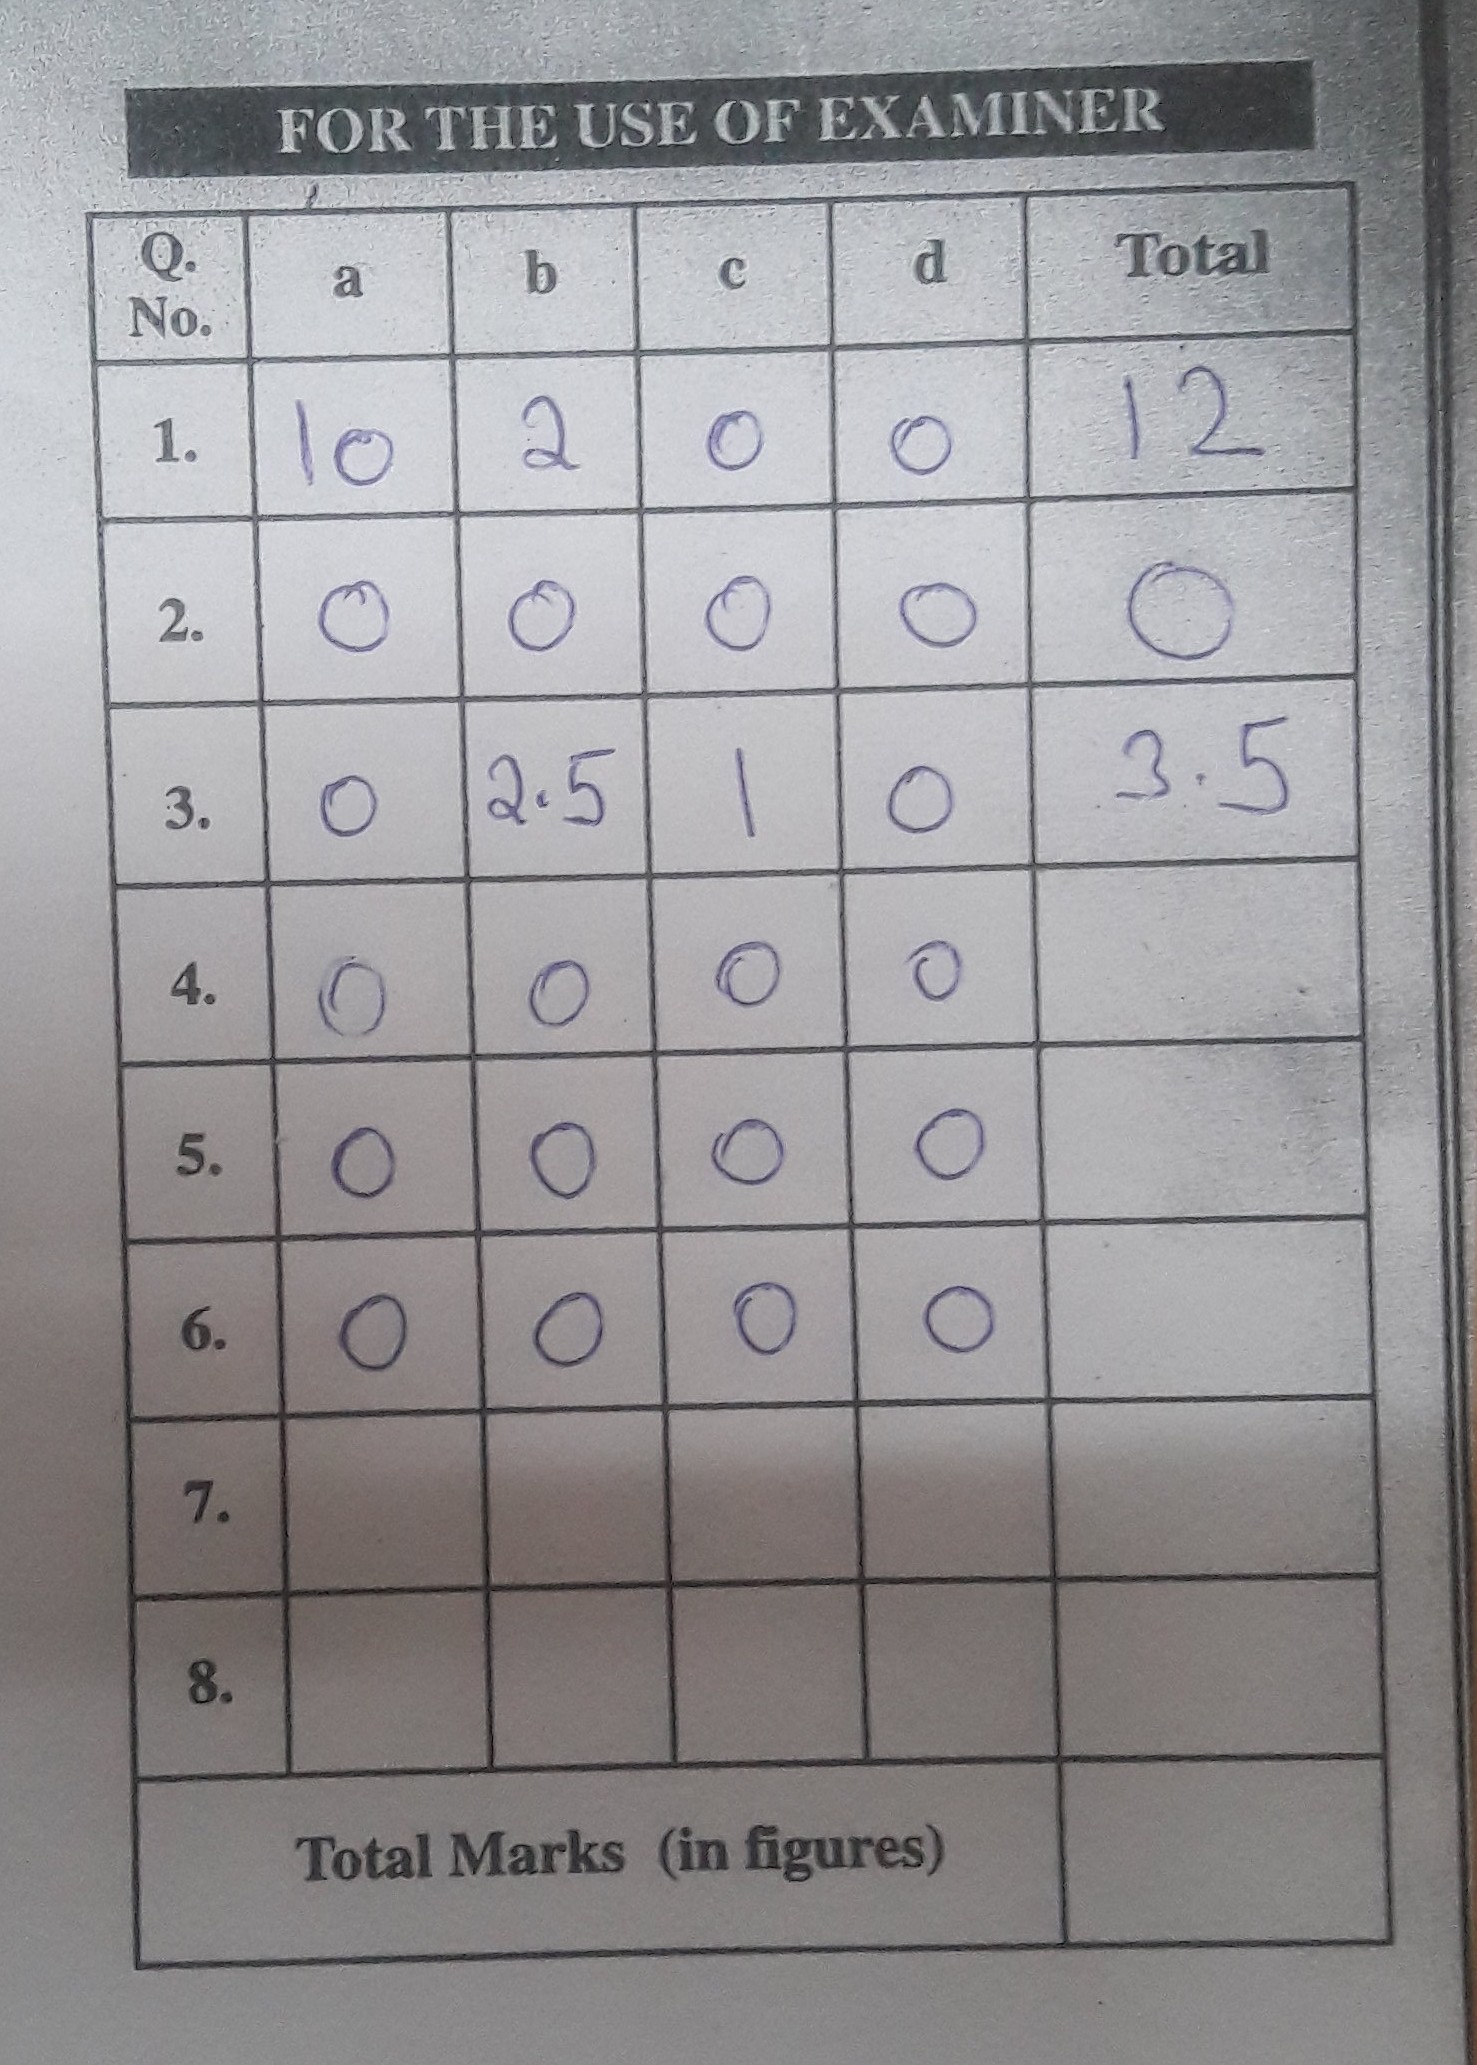 FOR THE USE OF EXAMINER
Q. No. a b c d Total
1. 10 2 0 0 12
2. 0 0 0 0 0
3. 0 2.5 1 0 3.5
4. 0 0 0 0
5. 0 0 0 0
6. 0 0 0 0
7.
8.
Total Marks (in figures)